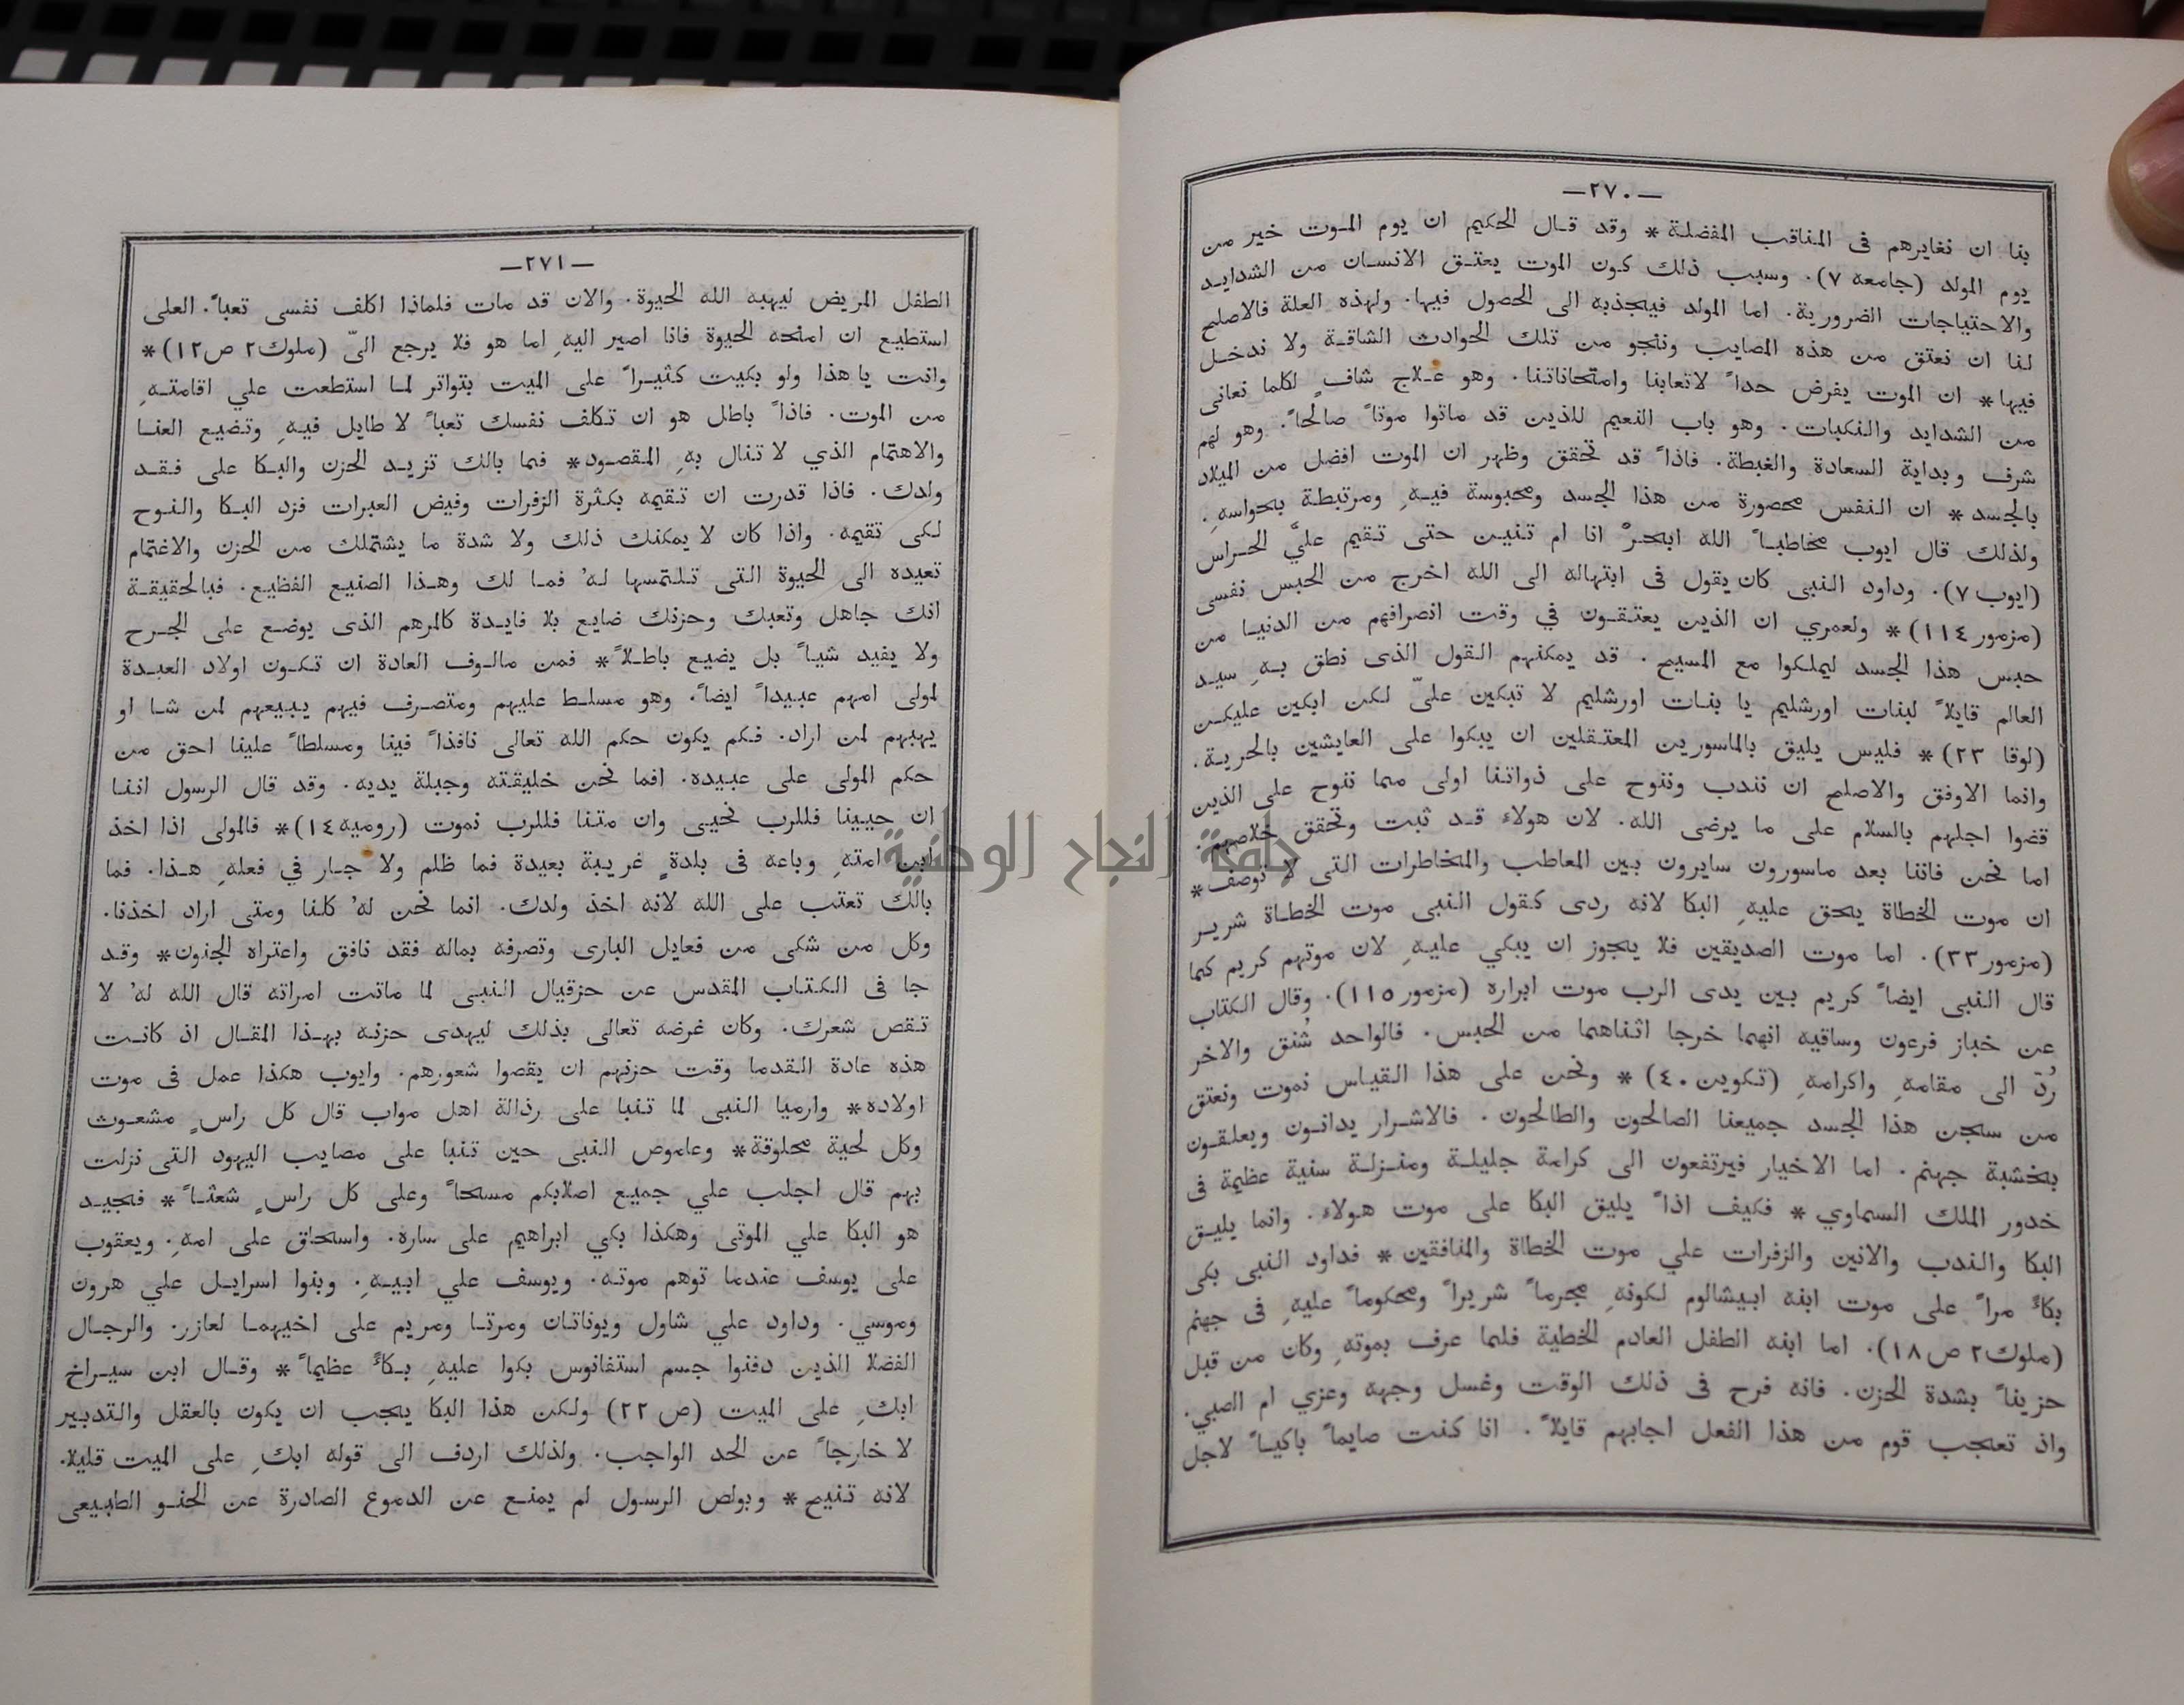 —٢٧٠—
بنا ان نغايرهم فى المناقب المفضلة * وقد قال الحكيم ان يوم الموت خير من
يوم المولد (جامعه ٧). وسبب ذلك كون الموت يعتق الانسان من الشدايد
والاحتياجات الضرورية. اما المولد فيجذبه الى الحصول فيها. ولهذه العلة فالاصلح
لنا ان نعتق من هذه المصايب وننجو من تلك الحوادث الشاقة ولا ندخل
فيها * ان الموت يفرض حداً لاتعابنا وامتحاناتنا. وهو علاج شافٍ لكلما نعانى
من الشدايد والنكبات. وهو باب النعيم للذين قد ماتوا موتاً صالحاً. وهو لهم
شرف وبداية السعادة والغبطة. فاذاً قد تحقق وظهر ان الموت افضل من الميلاد
بالجسد * ان النفس محصورة من هذا الجسد ومحبوسة فيهِ ومرتبطة بحواسهِ.
ولذلك قال ايوب مخاطباً الله ابحرٌ انا ام تنين حتى تقيم عليَّ الحراس
(ايوب ٧). وداود النبى كان يقول فى ابتهاله الى الله اخرج من الحبس نفسى
(مزمور ١١٤) * ولعمري ان الذين يعتقون في وقت انصرافهم من الدنيا من
حبس هذا الجسد ليملكوا مع المسيح. قد يمكنهم القول الذى نطق بهِ سيد
العالم قايلاً لبنات اورشليم يا بنات اورشليم لا تبكين علىّ لكن ابكين عليكن
(لوقا ٢٣) * فليس يليق بالماسورين المعتقلين ان يبكوا على العايشين بالحرية.
وانما الاوفق والاصلح ان نندب وننوح على ذواتنا اولى مما ننوح على الذين
قضوا اجلهم بالسلام على ما يرضى الله. لان هولاء قد ثبت وتحقق خلاصهم.
اما نحن فاننا بعد ماسورون سايرون بين المعاطب والمخاطرات التى لا توصف *
ان موت الخطاة يحق عليهِ البكا لانه ردى كقول النبى موت الخطاة شرير
(مزمور ٣٣). اما موت الصديقين فلا يجوز ان يبكي عليهِ لان موتهم كريم كما
قال النبى ايضاً كريم بين يدى الرب موت ابراره (مزمور ١١٥). وقال الكتاب
عن خباز فرعون وساقيه انهما خرجا اثناهما من الحبس. فالواحد شُنق والاخر
رُدّ الى مقامهِ واكرامهِ (تكوين ٤٠) * ونحن على هذا القياس نموت ونعتق
من سجن هذا الجسد جميعنا الصالحون والطالحون. فالاشرار يدانون ويعلقون
بخشبة جهنم. اما الاخيار فيرتفعون الى كرامة جليلة ومنزلة سنية عظيمة فى
خدور الملك السماوي * فكيف اذاً يليق البكا على موت هولاء. وانما يليق
البكا والندب والانين والزفرات علي موت الخطاة والمنافقين * فداود النبى بكى
بكاءً مراً على موت ابنه ابيشالوم لكونهِ مجرماً شريراً ومحكوماً عليهِ فى جهنم
(ملوك ٢ ص ١٨). اما ابنه الطفل العادم الخطية فلما عرف بموتهِ وكان من قبل
حزيناً بشدة الحزن. فانه فرح فى ذلك الوقت وغسل وجهه وعزي ام الصبي.
واذ تعجب قوم من هذا الفعل اجابهم قايلاً. انا كنت صايماً باكياً لاجل
—٢٧١—
الطفل المريض ليهبه الله الحيوة. والان قد مات فلماذا اكلف نفسى تعباً. العلى
استطيع ان امنحه الحيوة فانا اصير اليهِ اما هو فلا يرجع الىّ (ملوك ٢ ص ١٢) *
وانت يا هذا ولو بكيت كثيراً على الميت بتواتر لما استطعت علي اقامتهِ
من الموت. فاذاً باطل هو ان تكلف نفسك تعباً لا طايل فيهِ وتضيع العنا
والاهتمام الذي لا تنال بهِ المقصود * فما بالك تزيد الحزن والبكا على فقد
ولدك. فاذا قدرت ان تقيمه بكثرة الزفرات وفيض العبرات فزد البكا والنوح
لكى تقيمه. واذا كان لا يمكنك ذلك ولا شدة ما يشتملك من الحزن والاغتمام
تعيده الى الحيوة التى تلتمسها لهُ فما لك وهذا الصنيع الفظيع. فبالحقيقة
انك جاهل وتعبك وحزنك ضايع بلا فايدة كالمرهم الذى يوضع على الجرح
ولا يفيد شياً بل يضيع باطلاً * فمن مالوف العادة ان تكون اولاد العبدة
لمولى امهم عبيداً ايضاً. وهو مسلط عليهم ومتصرف فيهم يبيعهم لمن شا او
يهبهم لمن اراد. فكم يكون حكم الله تعالى نافذاً فينا ومسلطاً علينا احق من
حكم المولى على عبيده. افما نحن خليقته وجبلة يديه. وقد قال الرسول اننا
ان حيينا فللرب نحيى وان متنا فللرب نموت (روميه ١٤) * فالمولى اذا اخذ
ابن امتهِ وباعه فى بلدةٍ غريبة بعيدة فما ظلم ولا جار في فعلهِ هذا. فما
بالك تعتب على الله لانه اخذ ولدك. انما نحن لهُ كلنا ومتى اراد اخذنا.
وكل من شكى من فعايل البارى وتصرفه بماله فقد نافق واعتراه الجنون * وقد
جا فى الكتاب المقدس عن حزقيال النبى لما ماتت امراته قال الله لهُ لا
تقص شعرك. وكان غرضه تعالى بذلك ليهدى حزنه بهذا المقال اذ كانت
هذه عادة القدما وقت حزنهم ان يقصوا شعورهم. وايوب هكذا عمل فى موت
اولاده * وارميا النبى لما تنبا على رذالة اهل مواب قال كل راسٍ مشعوث
وكل لحية محلوقة * وعاموص النبى حين تنبا على مصايب اليهود التى نزلت
بهم قال اجلب علي جميع اصلابكم مسحاً وعلى كل راسٍ شعثاً * فجيد
هو البكا علي الموتى وهكذا بكي ابراهيم على ساره. واسحاق على امهِ. ويعقوب
على يوسف عندما توهم موته. ويوسف علي ابيهِ. وبنوا اسرايل علي هرون
وموسي. وداود علي شاول ويوناتان ومرتا ومريم على اخيهما لعازر. والرجال
الفضلا الذين دفنوا جسم استفانوس بكوا عليهِ بكاءً عظيماً * وقال ابن سيراخ
ابكِ على الميت (ص ٢٢) ولكن هذا البكا يجب ان يكون بالعقل والتدبير
لا خارجاً عن الحد الواجب. ولذلك اردف الى قوله ابكِ على الميت قليلا.
لانه تنيح * وبولص الرسول لم يمنع عن الدموع الصادرة عن الحنو الطبيعى
جامعة النجاح الوطنية